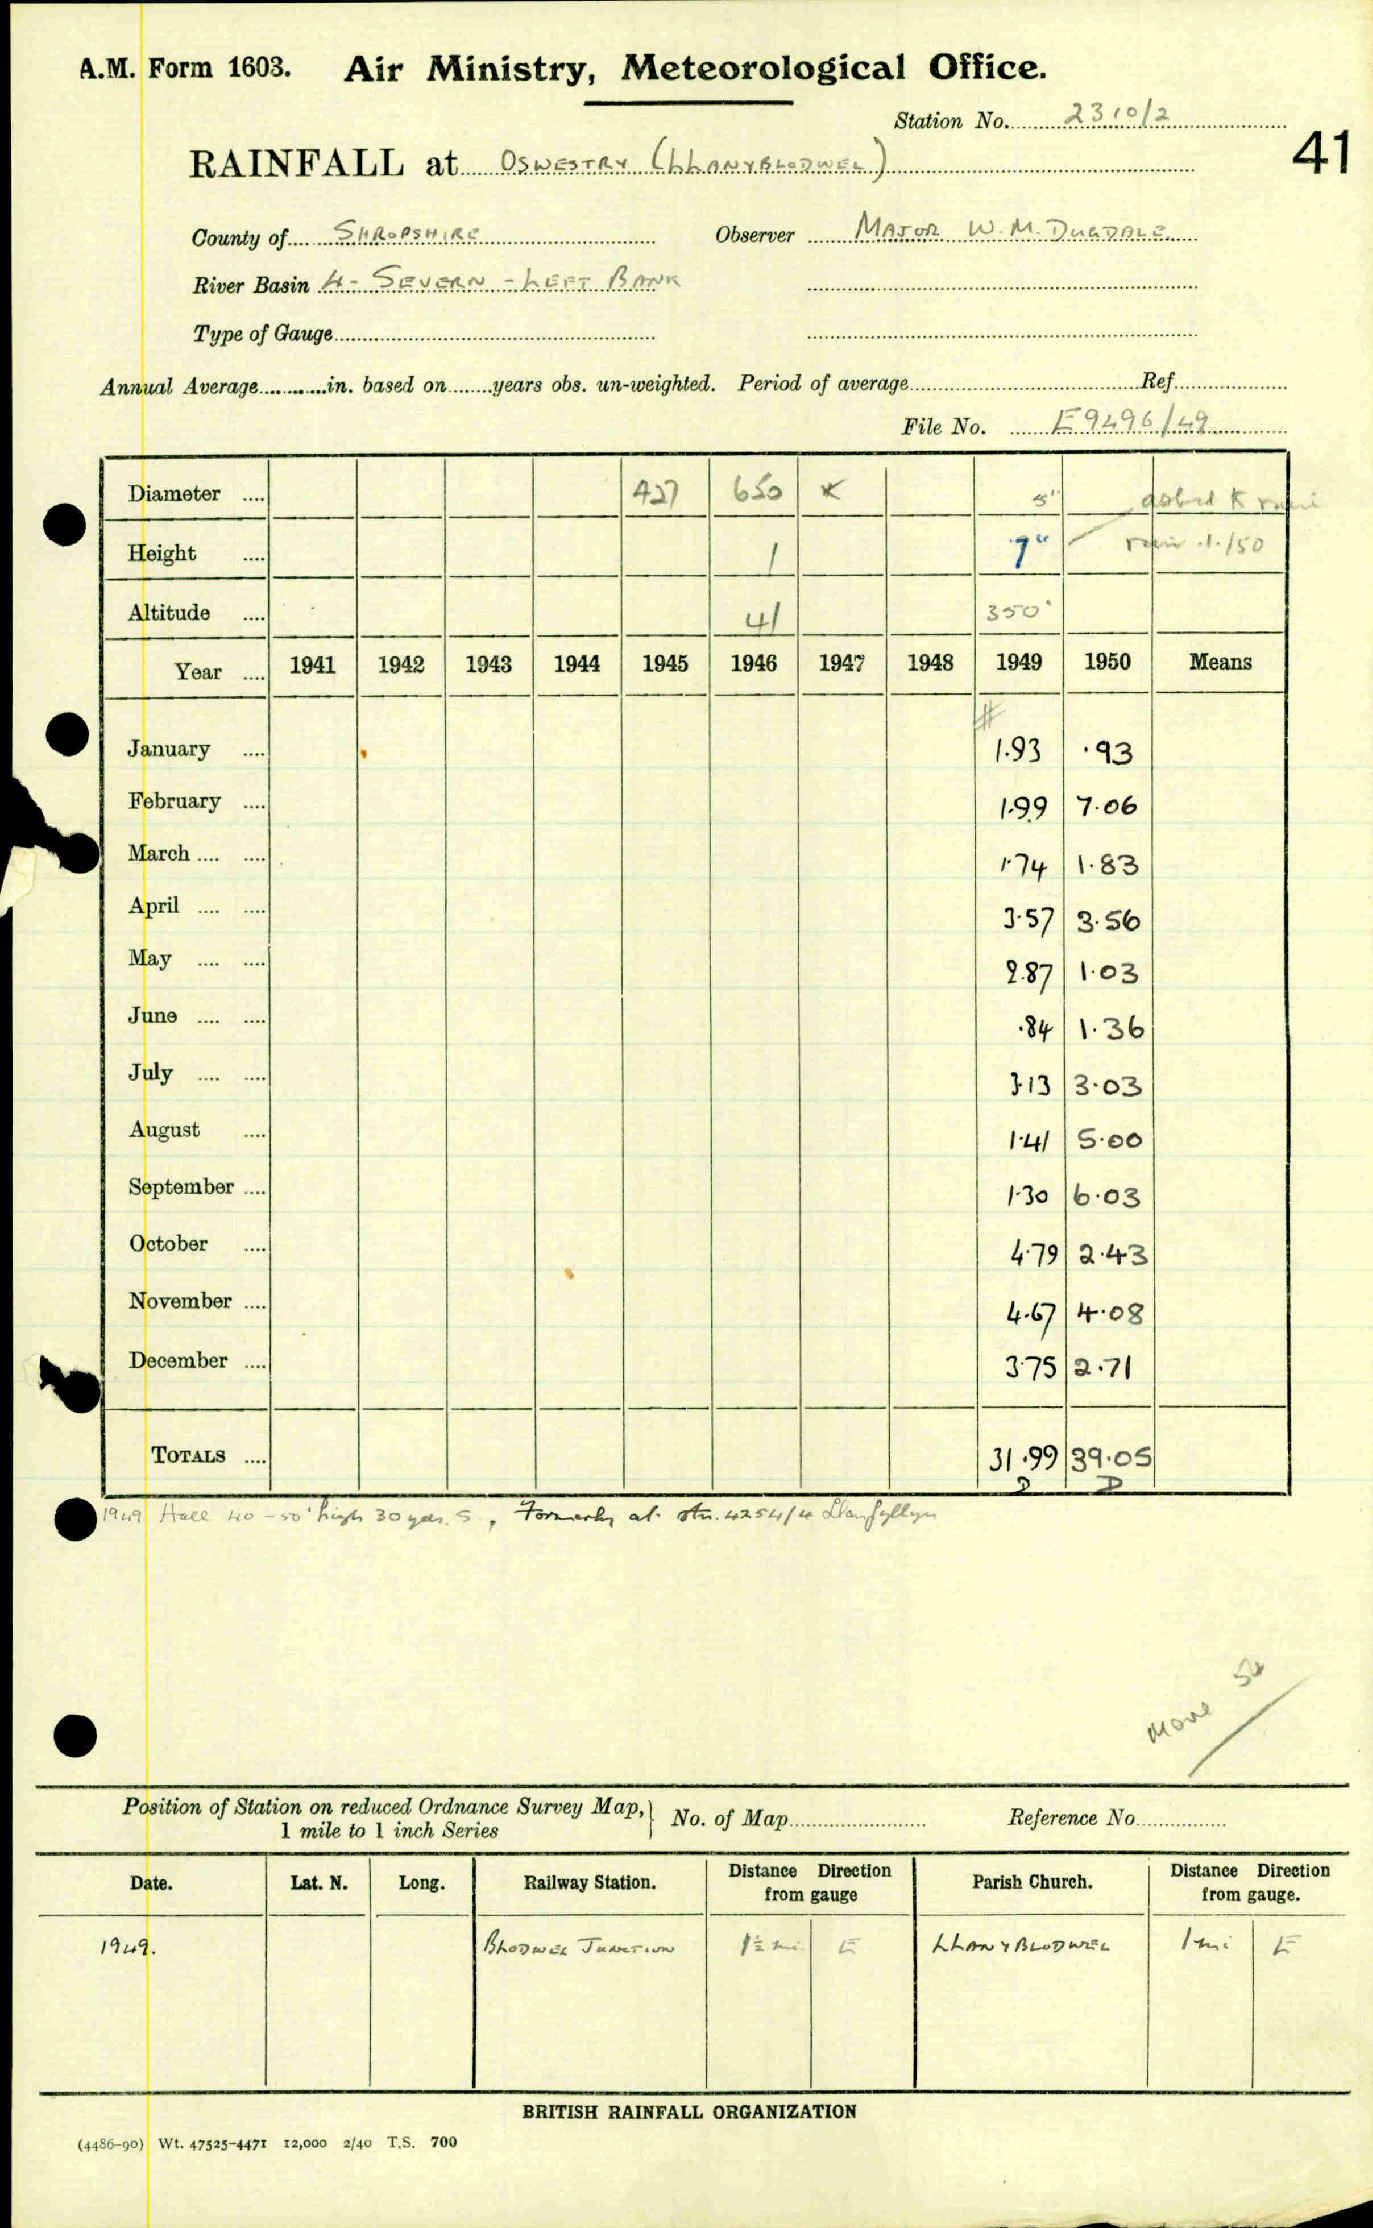 A.M. Form 1603. Air Ministry, Meteorological Office.
Station No. 2310/2
41
RAINFALL at OSWESTRY (LLANYBLODWEL)
County of SHROPSHIRE Observer MAJOR W.M. DUGDALE
River Basin 4- SEVERN - LEFT BANK
Type of Gauge
Annual Average in. based on years obs. un-weighted. Period of average Ref
File No. E9496/49
Diameter 427 650 5"
Height 1 9" rain 1./50
Altitude 41 350'
Year 1941 1942 1943 1944 1945 1946 1947 1948 1949 1950 Means
#
January 1.93 .93
February 1.99 7.06
March 1.74 1.83
April 3.57 3.56
May 2.87 1.03
June .84 1.36
July 3.13 3.03
August 1.41 5.00
September 1.30 6.03
October 4.79 2.43
November 4.67 4.08
December 3.75 2.71
TOTALS 31.99 39.05
D D
1949 40-50' high 30 yds. S., Formerly at stn. 4254/4 Llanfyllyn
Move 54
Position of Station on reduced Ordnance Survey Map,} No. of Map Reference No
1 mile to 1 inch Series
Date. Lat. N. Long. Railway Station. Distance Direction from gauge Parish Church. Distance Direction from gauge.
1949. BLODWEL JUNCTION 1½ mi. E LLANYBLODWEL 1 mi E
BRITISH RAINFALL ORGANIZATION
(4486-90) Wt. 47525-4471 12,000 2/40 T.S. 700